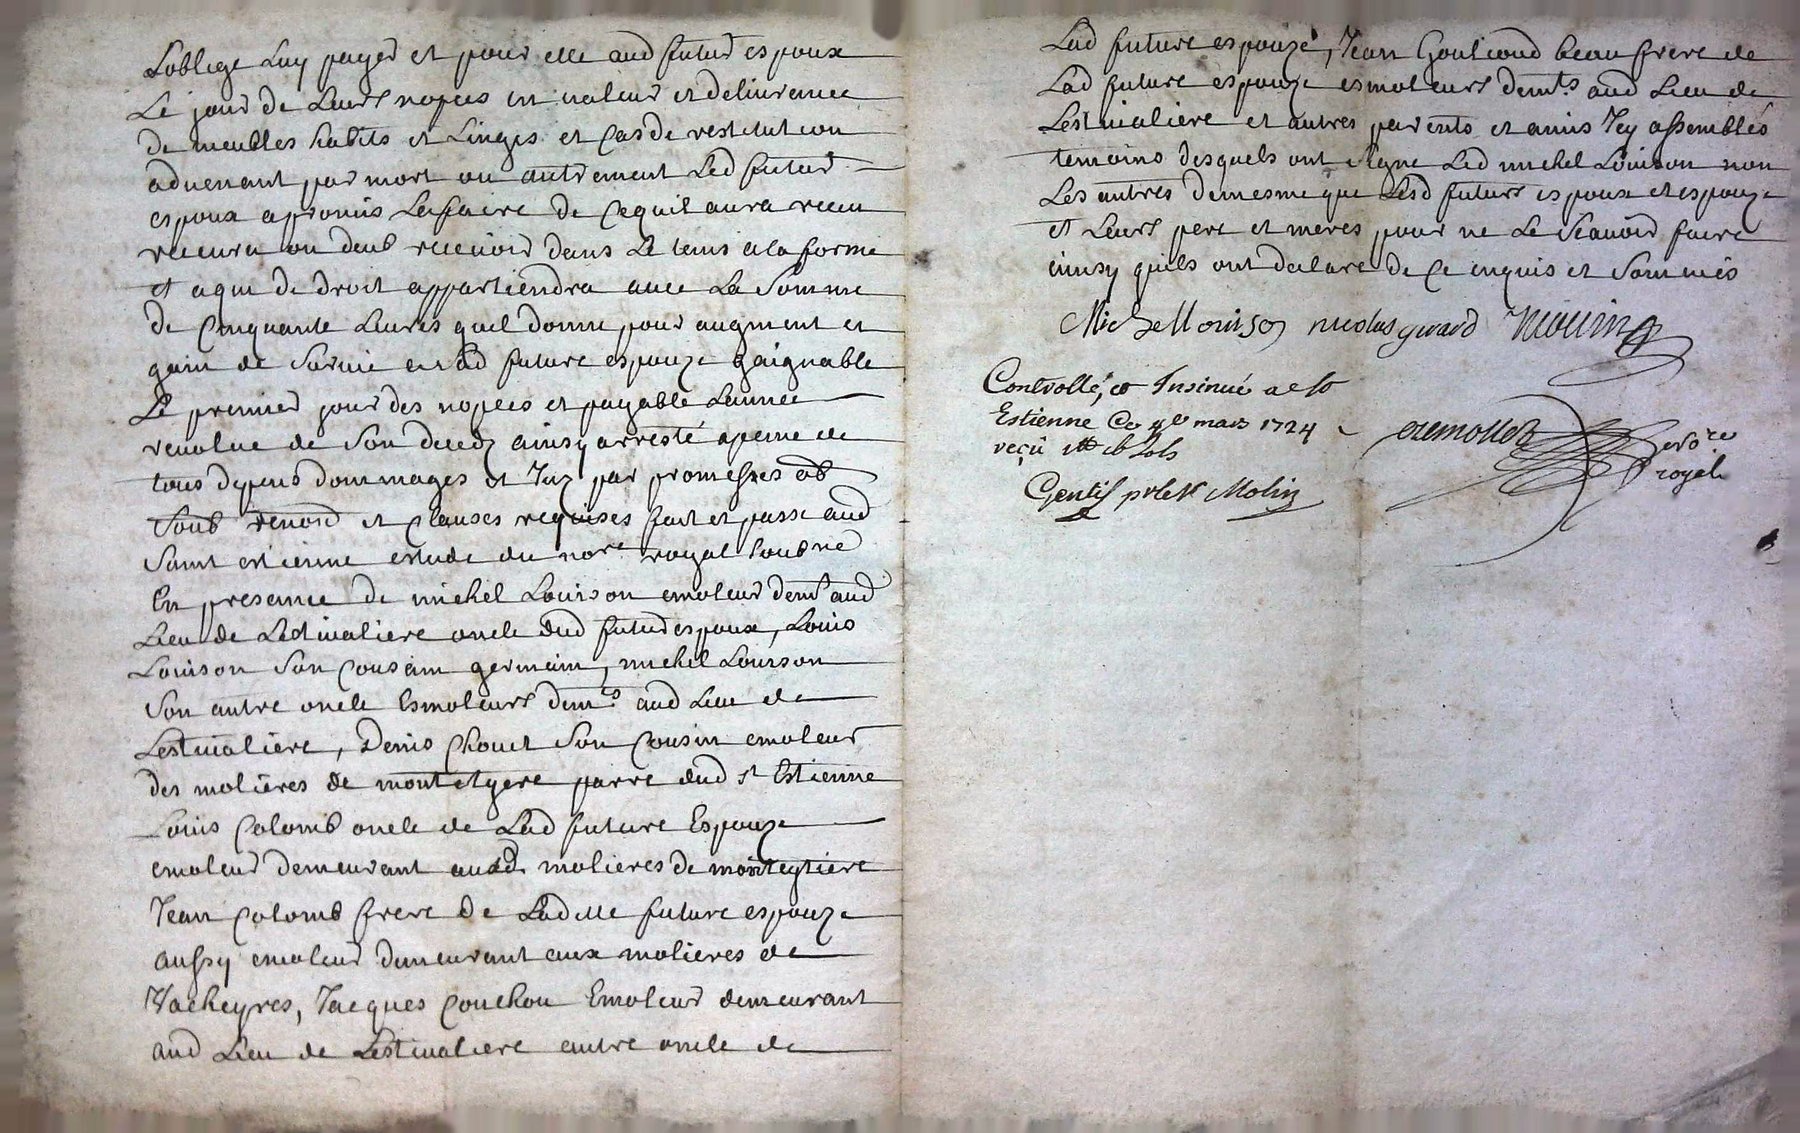 Loblige Luy payer et pour elle aud futur espoux
Le jour de Leurs nopces en valeur et delivrance
de meubles habits et Linges et Cas de restitution
advenant par mort ou autrement Led futur
espoux a promis La faire de Ce quil aura receu
recevra ou deub recevoir dans Le tems a la forme
et a qui de droit appartiendra avec La Somme
de Cinquante Livres quil donne pour augment et
gain de Survie a Lad future espouze gaignable
Le premier jour des nopces et payable Lannee
revolue de Son deceds ainsy arresté a peine de
tous depens dommages et Intz par promesses ob
Soub renond et Clauses requises fait et passé aud
Saint estienne estude du nore royal soubne
En presence de michel Louison emoleur demt aud
Lieu de Lestivaliere oncle dud futur espoux, Louis
Louison Son Cousin germain, michel Louison
Son autre oncle Esmoleurs demts aud Lieu de
Lestivaliere, Denis Chouet Son Cousin emoleur
des molieres de monteitgere parre dud st Estienne
Louis Colomb oncle de Lad future Espouze
emoleur demeurant auxd molieres de monteytiere
Jean Colomb frere de Ladite future espouze
aussy emoleur demeurant aux molieres de
Vacheyres, Jacques Couchou Emoleur demeurant
aud Lieu de Lestivaliere autre oncle de
Lad future espouze, Jean beau frere de
Lad future espouze esmoleurs demts aud Lieu de
Lestivaliere et autres parents et amis Icy assemblés
temoins desquels ont Signe Led michel Louison non
Les autres de mesme que Lesd futurs espoux et espouze
et Leurs pere et meres pour ne Le Scavoir faire
ainsy quils ont declare de Ce enquis et Sommés
Michel Louison nicolas girard mourin
Controllé, et Insinué a St
Estienne Ce 9e mars 1724
reçu sols
Gentif pr le Sr Molin
nore
royal